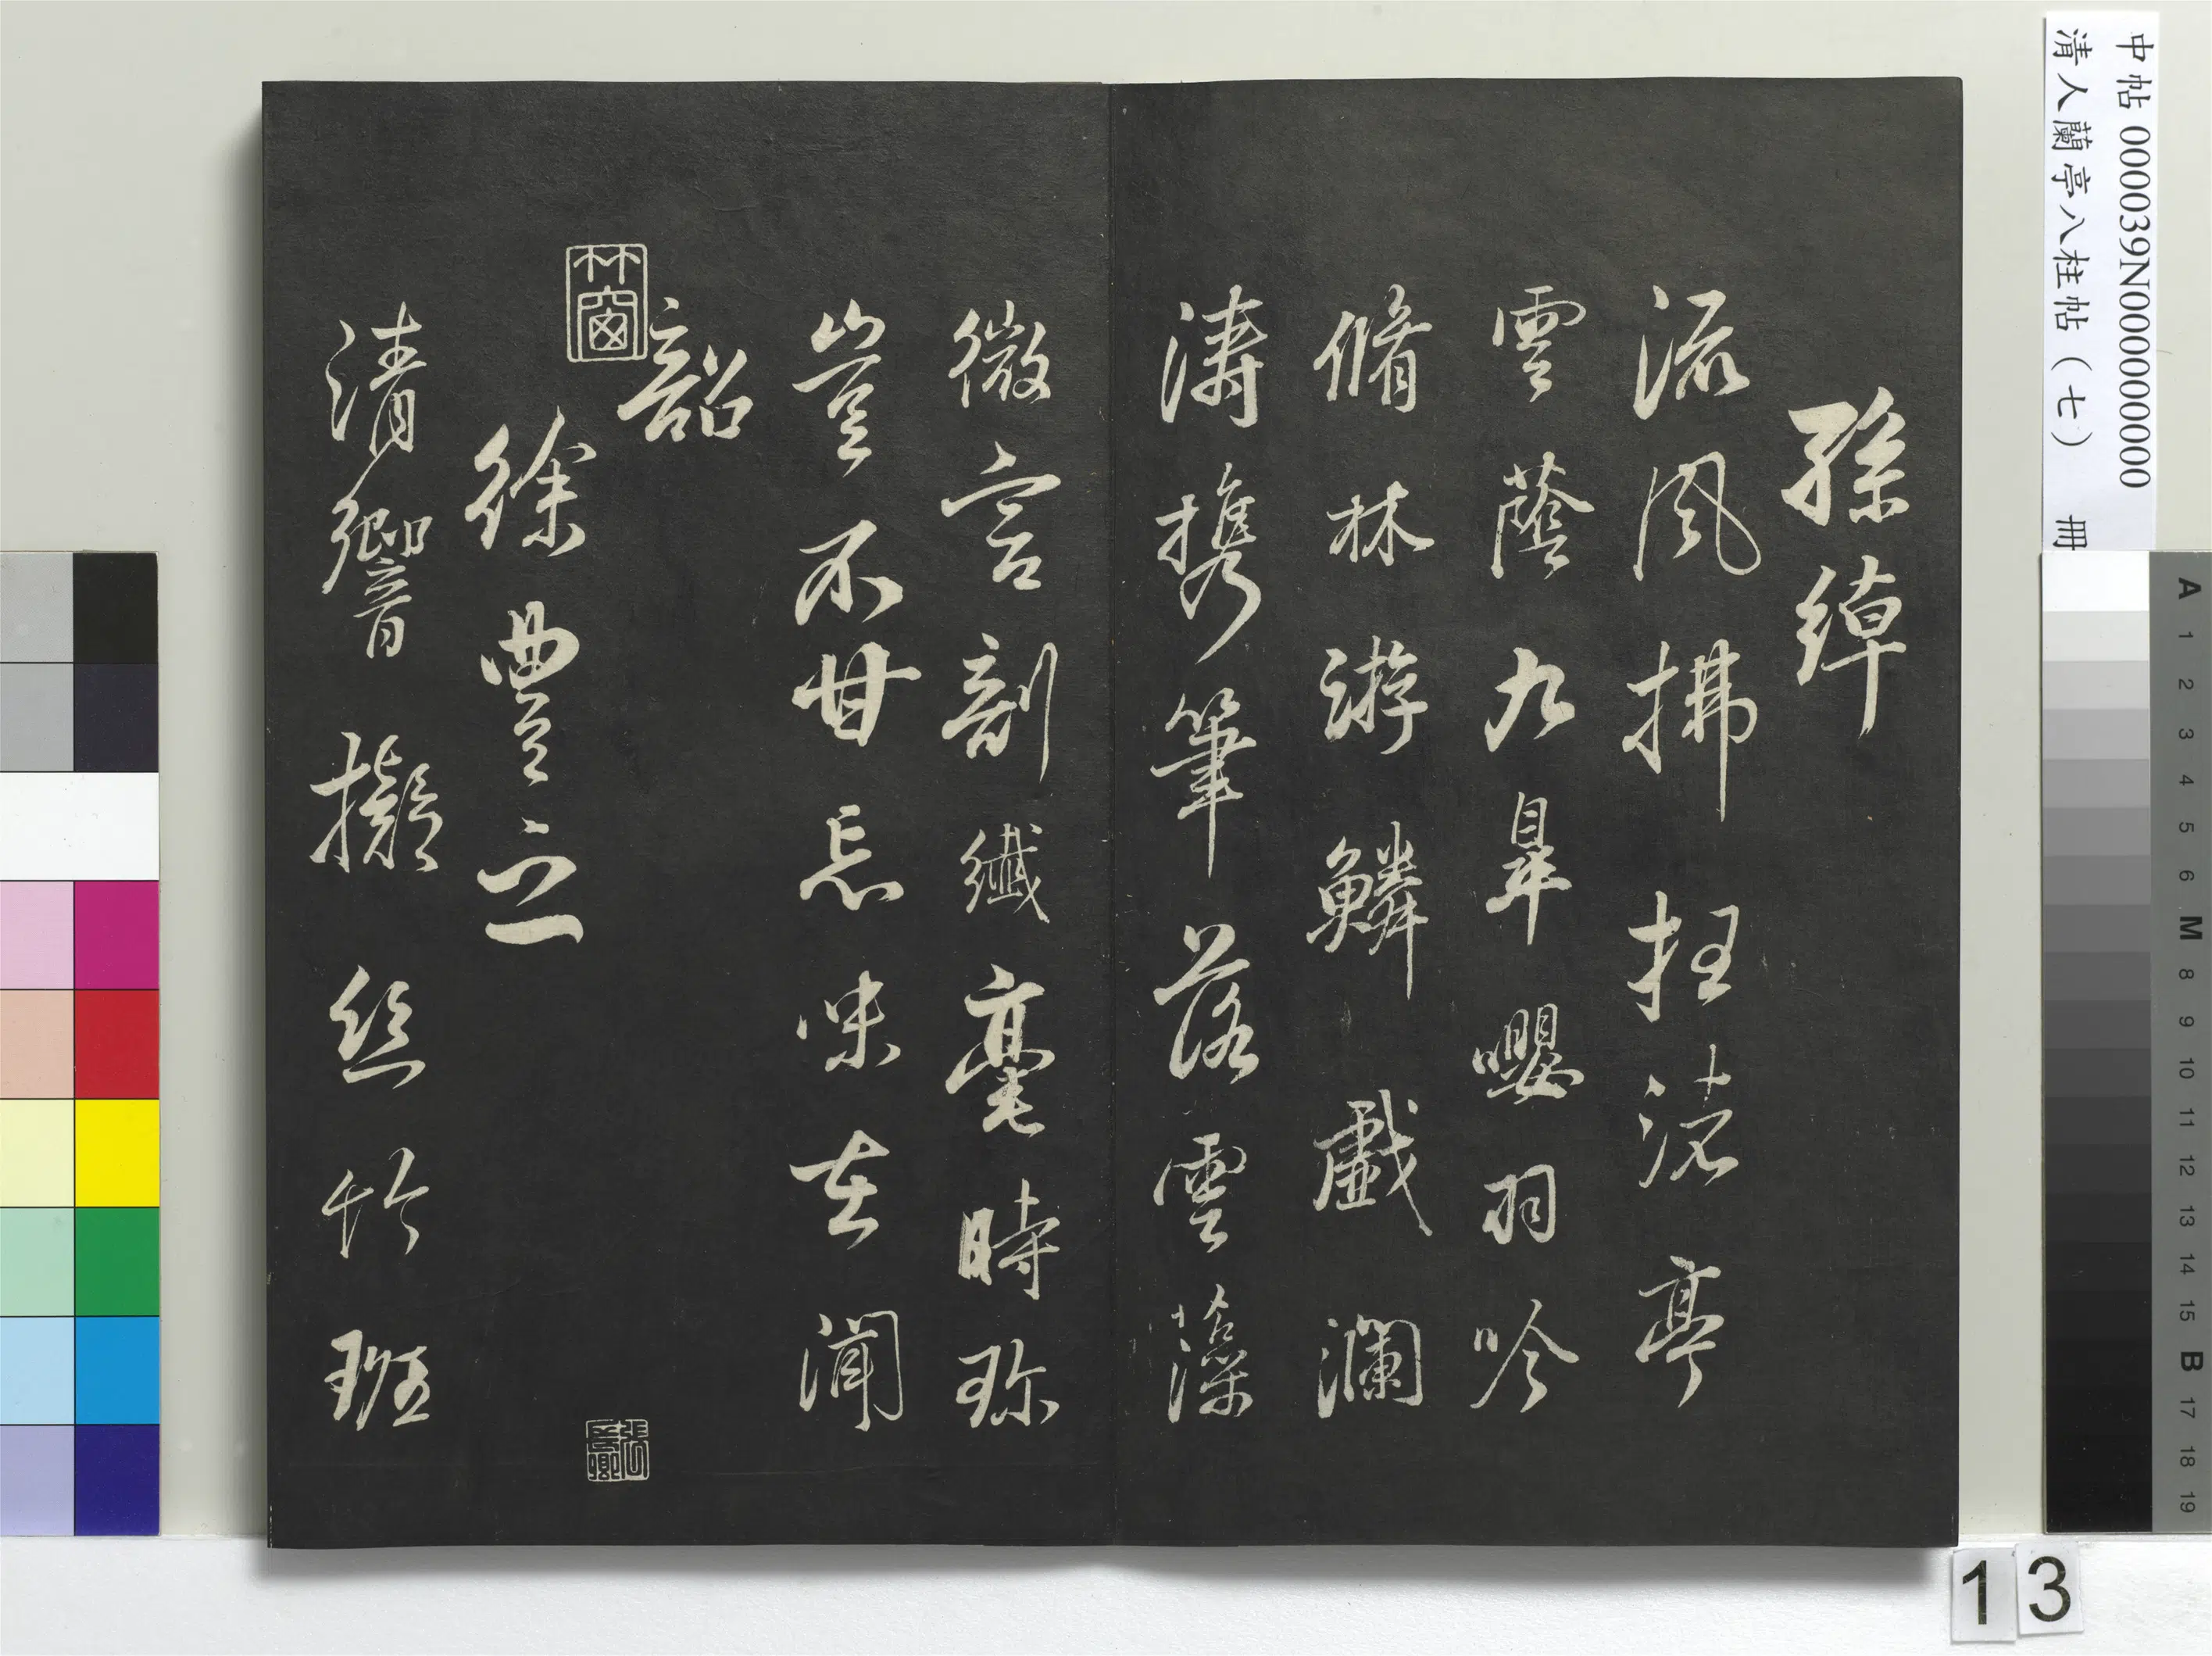 孫綽
流風拂枉渚亭
雲蔭九皐嚶羽吟
脩林游鱗戲瀾
濤攜筆落雲藻
微言剖纖毫時珍
豈不甘忘味在聞
韶
徐豐之
清響擬絲竹班
林窗
中帖 000039N000000000
清人蘭亭八柱帖（七） 冊
A 1 2 3 4 5 6 M 8 9 10 11 12 13 14 15 B 17 18 19
13